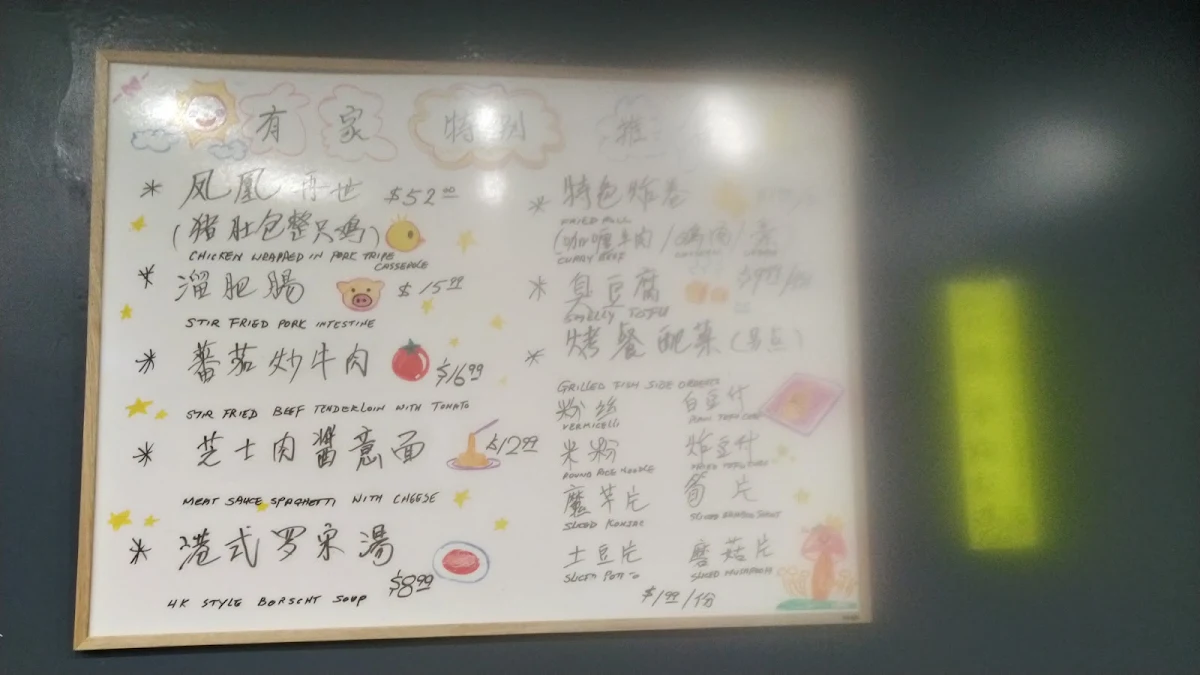 有家 特别 推
* 凤凰再世 $52.00
(猪肚包整只鸡)
CHICKEN WRAPPED IN PORK TRIPE
CASSEROLE
* 溜肥肠 $15.99
STIR FRIED PORK INTESTINE
* 蕃茄炒牛肉 $16.99
STIR FRIED BEEF TENDERLOIN WITH TOMATO
* 芝士肉酱意面 $12.99
MEAT SAUCE SPAGHETTI WITH CHEESE
* 港式罗宋湯 $8.99
HK STYLE BORSCHT SOUP
* 特色炸卷
FRIED ROLL
(咖喱牛肉/鸡肉/
CURRY BEEF
* 臭豆腐
SMELLY TOFU
* 烤餐配菜(另点)
GRILLED FISH SIDE ORDERS
粉丝
VERMICELLI
米粉 炸豆什
ROUND RICE NOODLE
魔芋片 筍片
SLICED KONJAC SLICED BAMBOO SHOOT
土豆片 磨菇片
SLICED POTATO SLICED MUSHROOM
$1.99/份